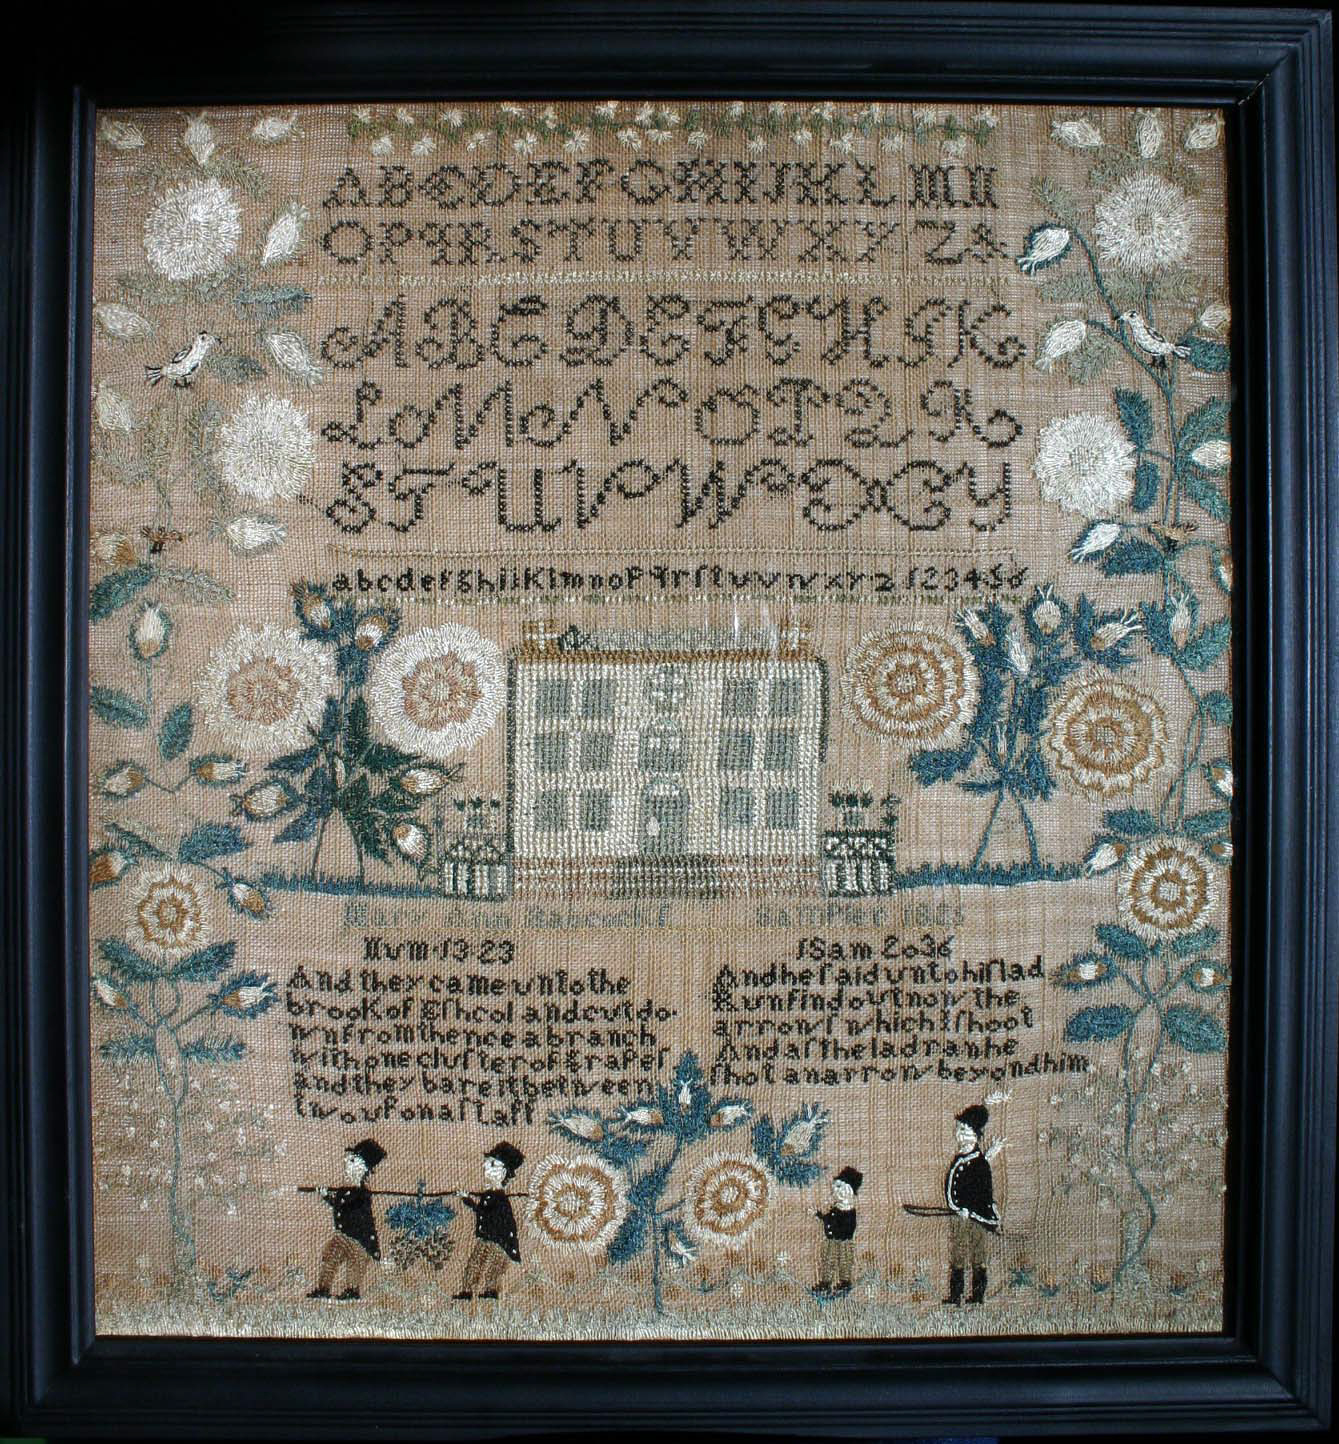 ABCDEFGHIJKLMN
OPQRSTUVWXYZA
ABCDEFGHIK
LMNOPQR
STUVWXY
abcdefghijKlmnoPqrſtuvwxyz 123456
Mary Ann Hancock's Sampler
Num 13-23
And they came unto the
brook of Eſhcol and cut do-
wn from thence a branch
with one cluſter of graPeſ
and they bare it between
two uPon a ſtaff
1 Sam 2036
And he ſaid unto hiſ lad
Run find out now the
arrowſ which I ſhoot
And aſ the lad ran he
ſhot an arrow beyond him